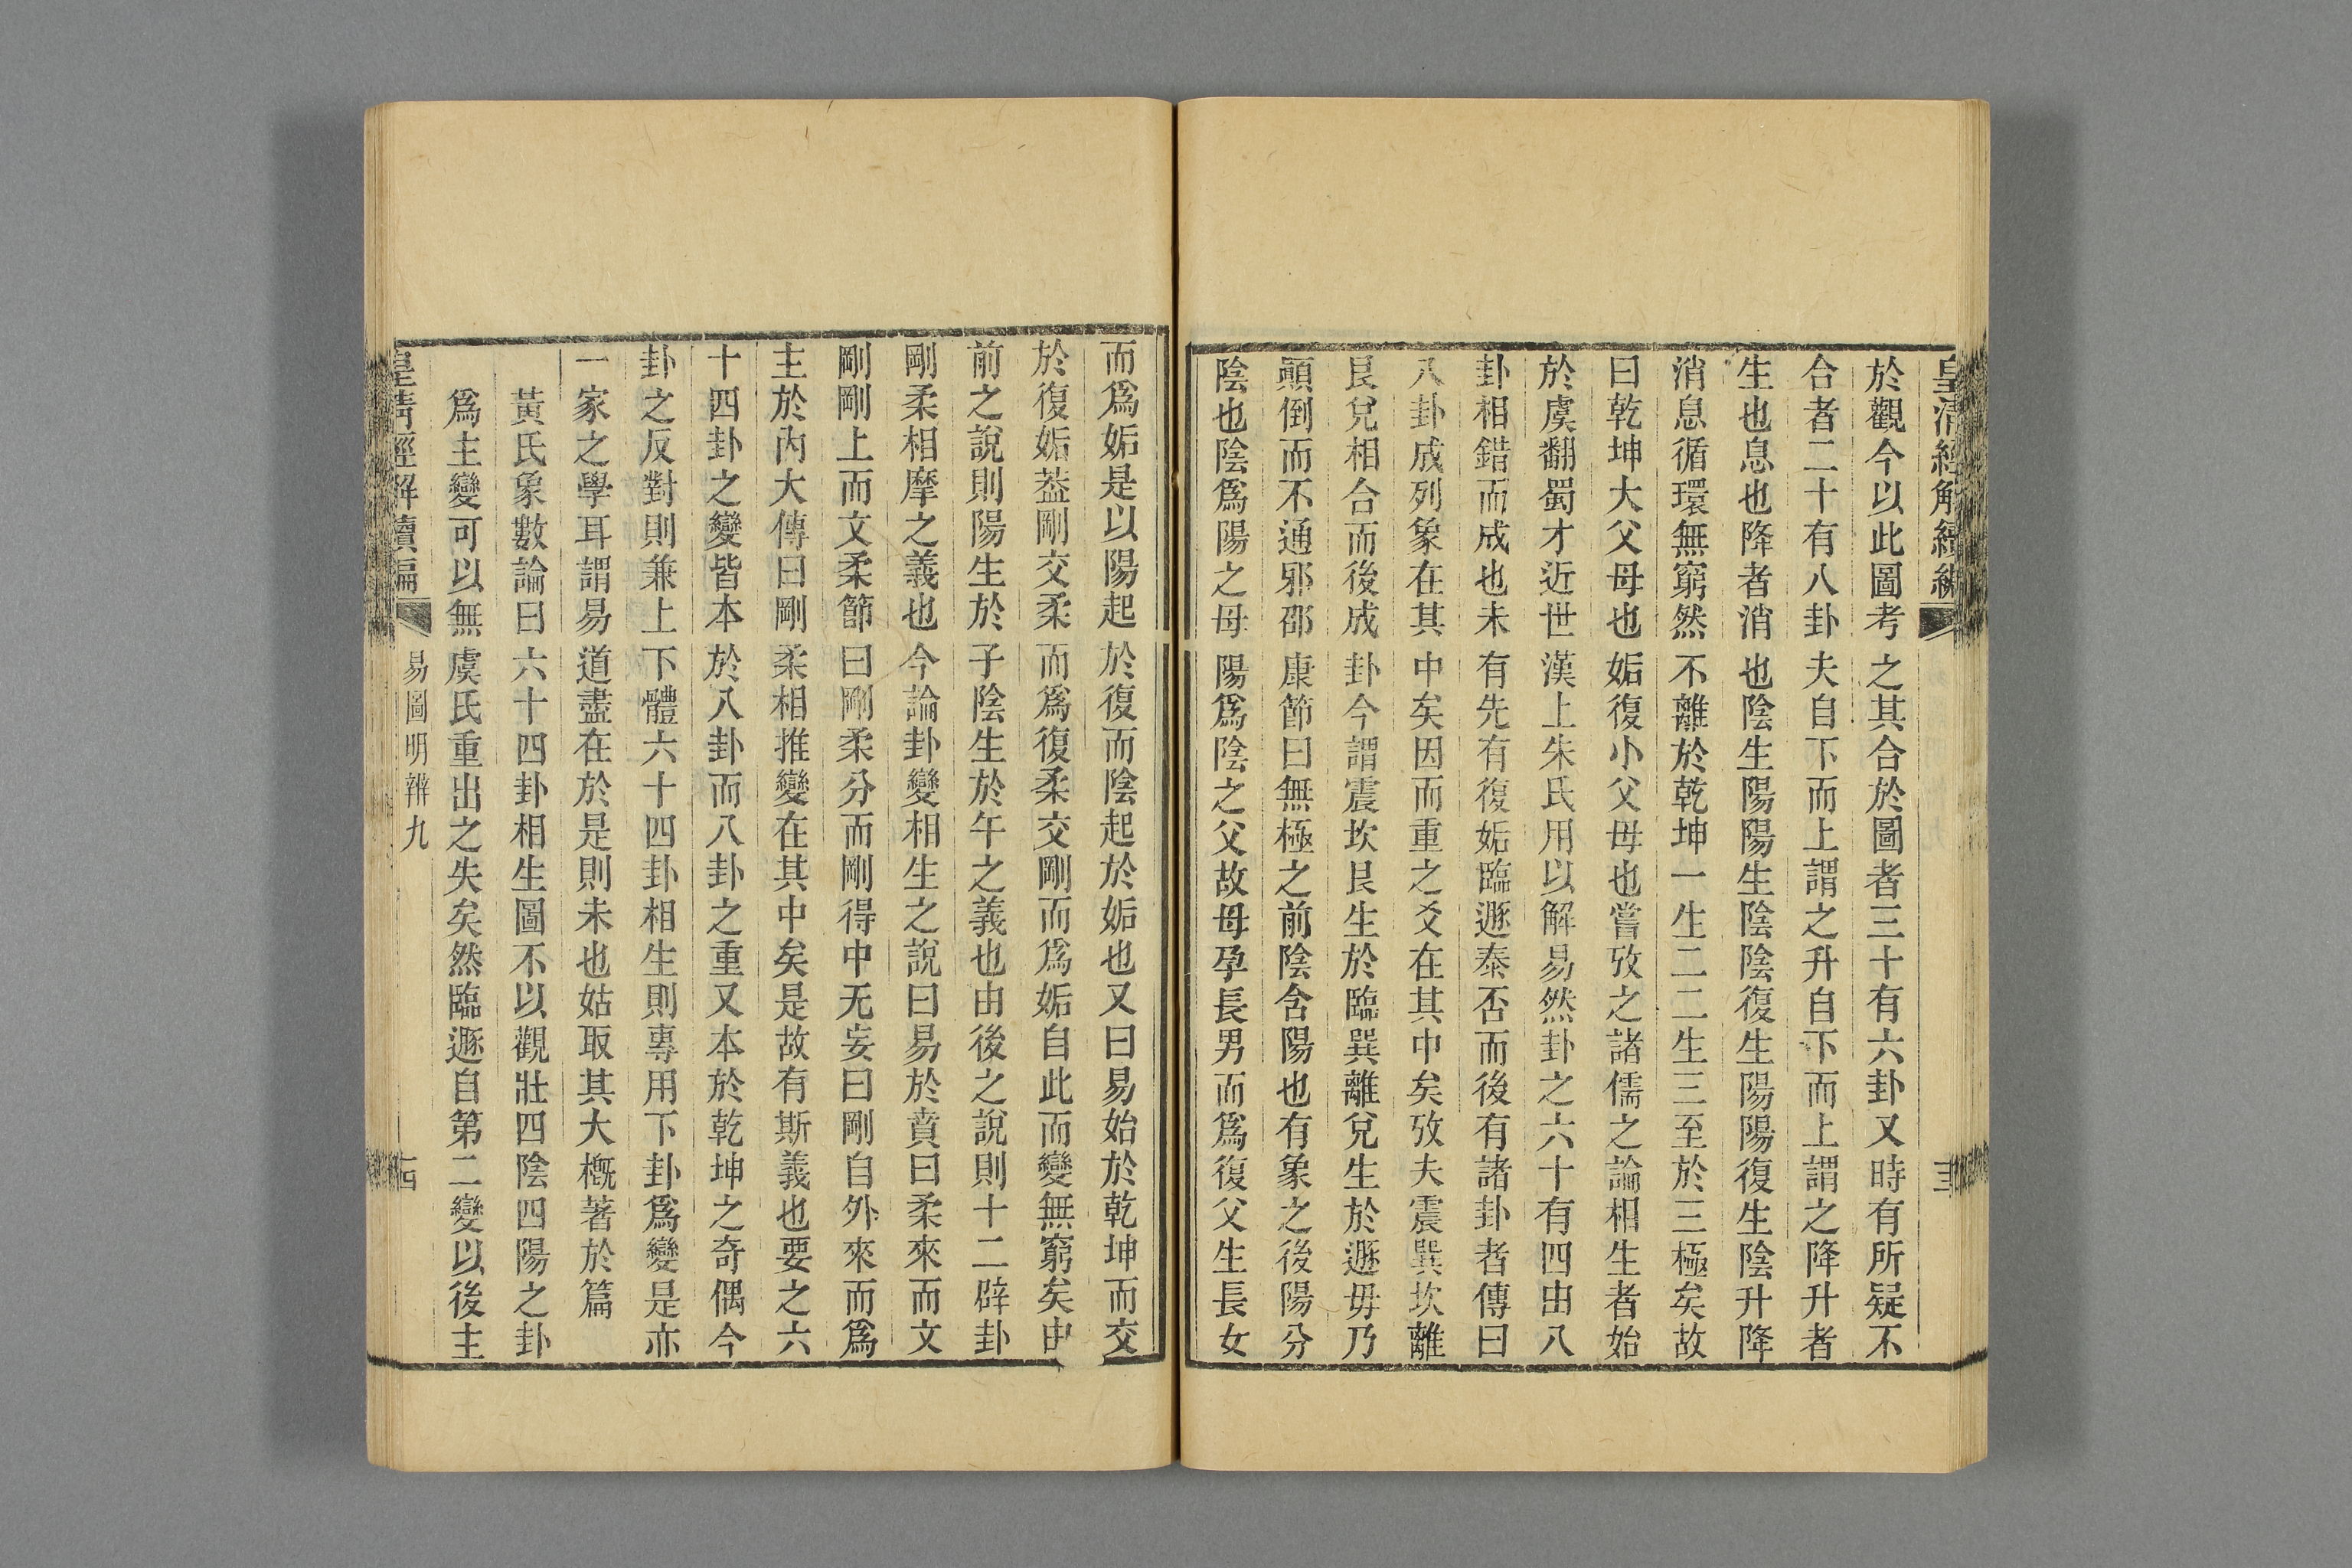 皇清經解續編
三
於觀今以此圖考之其合於圖者三十有六卦又時有所疑不
合者二十有八卦夫自下而上謂之升自下而上謂之降升者
生也息也降者消也陰生陽陽生陰陰復生陽陽復生陰升降
消息循環無窮然不離於乾坤一生二二生三至於三極矣故
曰乾坤大父母也姤復小父母也嘗攷之諸儒之論相生者始
於虞翻蜀才近世漢上朱氏用以解易然卦之六十有四由八
卦相錯而成也未有先有復姤臨遯泰否而後有諸卦者傳曰
八卦成列象在其中矣因而重之爻在其中矣攷夫震巽坎離
艮兌相合而後成卦今謂震坎艮生於臨巽離兌生於遯毋乃
顚倒而不通邪邵康節曰無極之前陰含陽也有象之後陽分
陰也陰爲陽之母陽爲陰之父故母孕長男而爲復父生長女
而爲姤是以陽起於復而陰起於姤也又曰易始於乾坤而交
於復姤葢剛交柔而爲復柔交剛而爲姤自此而變無窮矣由
前之說則陽生於子陰生於午之義也由後之說則十二辟卦
剛柔相摩之義也今論卦變相生之說曰易於賁曰柔來而文
剛剛上而文柔節曰剛柔分而剛得中无妄曰剛自外來而爲
主於內大傳曰剛柔相推變在其中矣是故有斯義也要之六
十四卦之變皆本於八卦而八卦之重又本於乾坤之奇偶今
卦之反對則兼上下體六十四卦相生則專用下卦爲變是亦
一家之學耳謂易道盡在於是則未也姑取其大槪著於篇
黃氏象數論曰六十四卦相生圖不以觀壯四陰四陽之卦
爲主變可以無虞氏重出之失矣然臨遯自第二變以後主
皇清經解續編
易圖明辨九
古